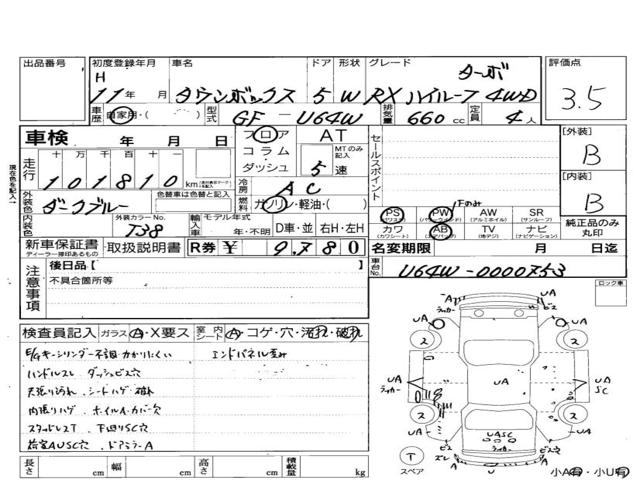 出品番号 初度登録年月 車名 ドア 形状 グレード 評価点
H 11年 月 タウンボックス 5 W RXハイルーフ4WD ターボ 3.5
車歴 自家用・( ) 型式 GF-U64W 排気量 660cc 定員 4人
車検 年 月 日 フロア AT セールスポイント [外装]
走行 十万 千百十一 コラム MTのみ記入 B
101810 km ダッシュ 5速
外装色 色替車は色替と記入 冷房 AC [内装]
ダークブルー 燃料 ガソリン・軽油・( ) B
内装色 外装カラーNo. T38 輸入車 モデル年式 PS PW AW SR
年・不明 D車・並 右H・左H カワ AB TV ナビ 純正品のみ丸印
新車保証書・取扱説明書 R券 ¥ 9,780 名変期限 月 日迄
ディーラー捺印あるもの
注意事項 後日品【 】 車台No. ロック車
不具合箇所等
検査員記入 ガラス A・X要ス 室内シート A・コゲ・穴・汚れ・破れ
E/Gキーシリンダー不調・かかりにくい エンドパネル歪み
ハンドルスレ ダッシュビス穴
天張り汚れ シートハゲ・破れ
内張りハゲ ホイルA・カバー欠
スタッドレスT 下回りSC穴
荷室AUSC穴 ドアミラーA
長さ cm 幅 cm 高さ cm 積載量 kg
UA UA
ラッカー ビス
2 2
UA UA UA
ラッカー SC
2 2
UASC
T
スペア
小A有・小U有
現在色を記入→